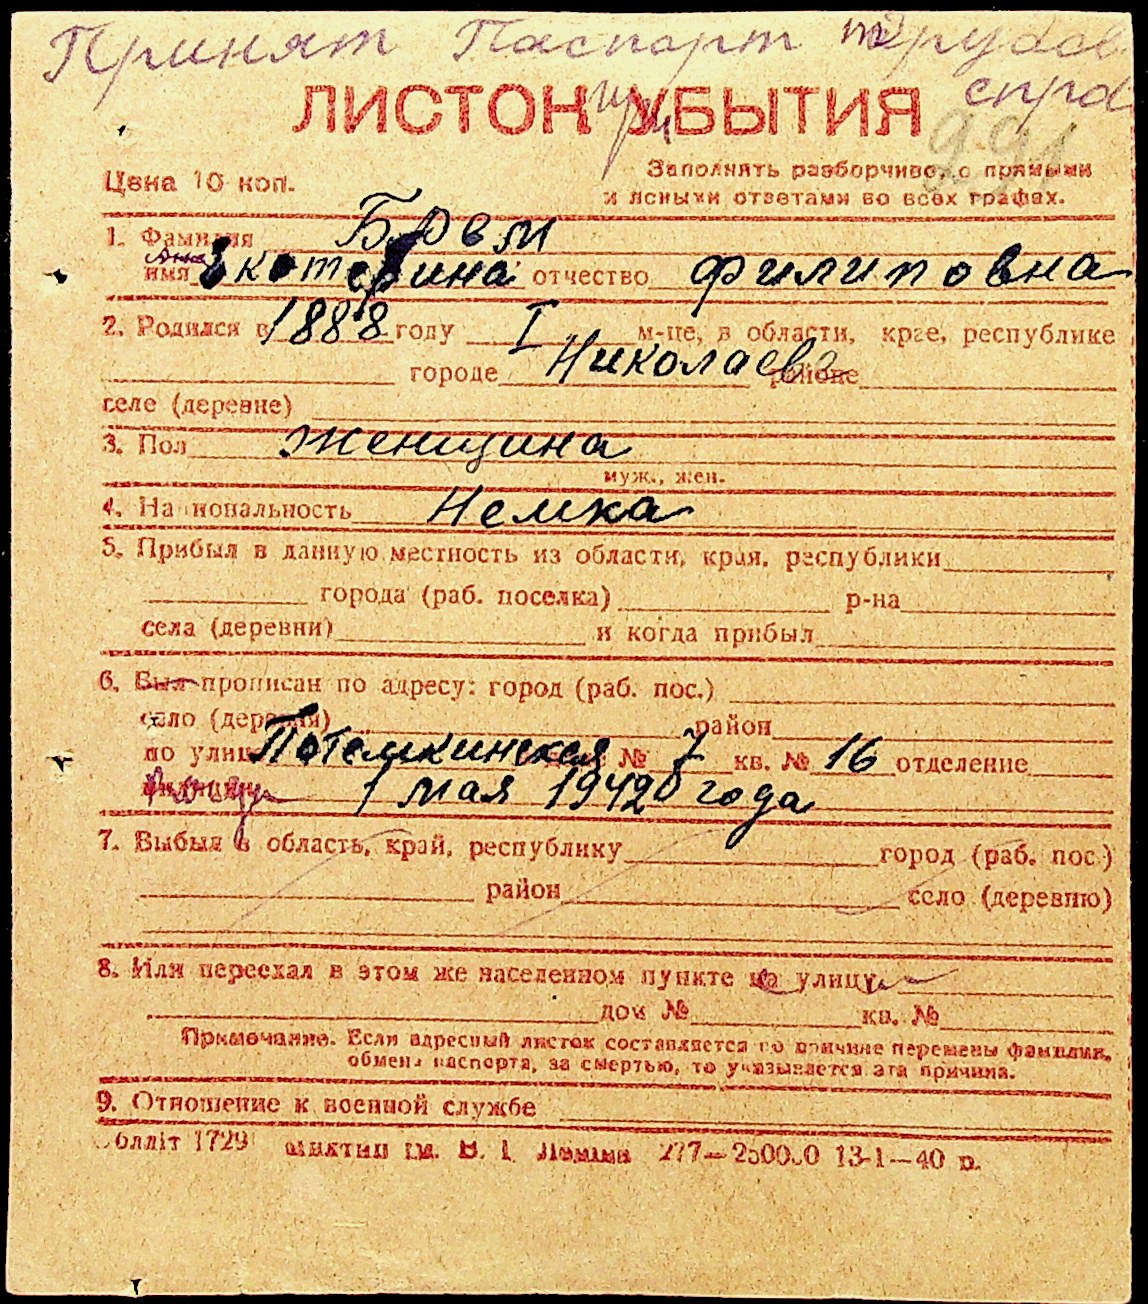 Принят Паспорт трудов
спра
ЛИСТОК УБЫТИЯ
Цена 10 коп.
Заполнять разборчиво, с прямыми
и ясными ответами во всех графах.
1. Фамилия Брем
имя Екатерина отчество Филиповна
2. Родился в 1888 году I м-це, в области, крае, республике
городе Николаев районе
селе (деревне)
3. Пол женщина
муж., жен.
4. Национальность Немка
5. Прибыл в данную местность из области, края, республики
города (раб. поселка) р-на
села (деревни) и когда прибыл
6. Был прописан по адресу: город (раб. пос.)
село (деревня) район
по улице Потемкинская № 7 кв. № 16 отделение
1 мая 1942 года
7. Выбыл в область, край, республику город (раб. пос.)
район село (деревню)
8. Или переехал в этом же населенном пункте на улицу
дом № кв. №
Примечание. Если адресный листок составляется по причине перемены фамилии,
обмена паспорта, за смертью, то указывается эта причина.
9. Отношение к военной службе
1729 ім. В. І. Леніна 277— 13-1—40 р.